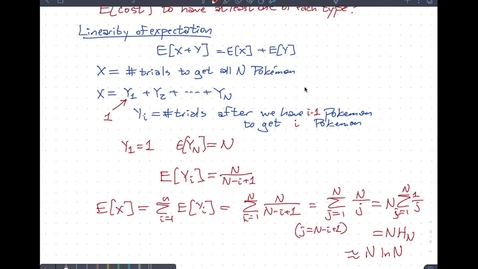 E[cost] to have at least one of each type?
Linearity of expectation
E[X+Y] = E[X] + E[Y]
X = # trials to get all N Pokémon
X = Y₁ + Y₂ + ··· + Y_N
1
Y_i = # trials after we have i-1 Pokemon
to get i Pokemon
Y₁ = 1 E[Y_N] = N
E[Y_i] = N/(N-i+1)
E[X] = Σ_{i=1}^{n} E[Y_i] = Σ_{i=1}^{N} N/(N-i+1) = Σ_{j=1}^{N} N/j = N Σ_{j=1}^{N} 1/j
(j=N-i+1)
= N H_N
≈ N ln N